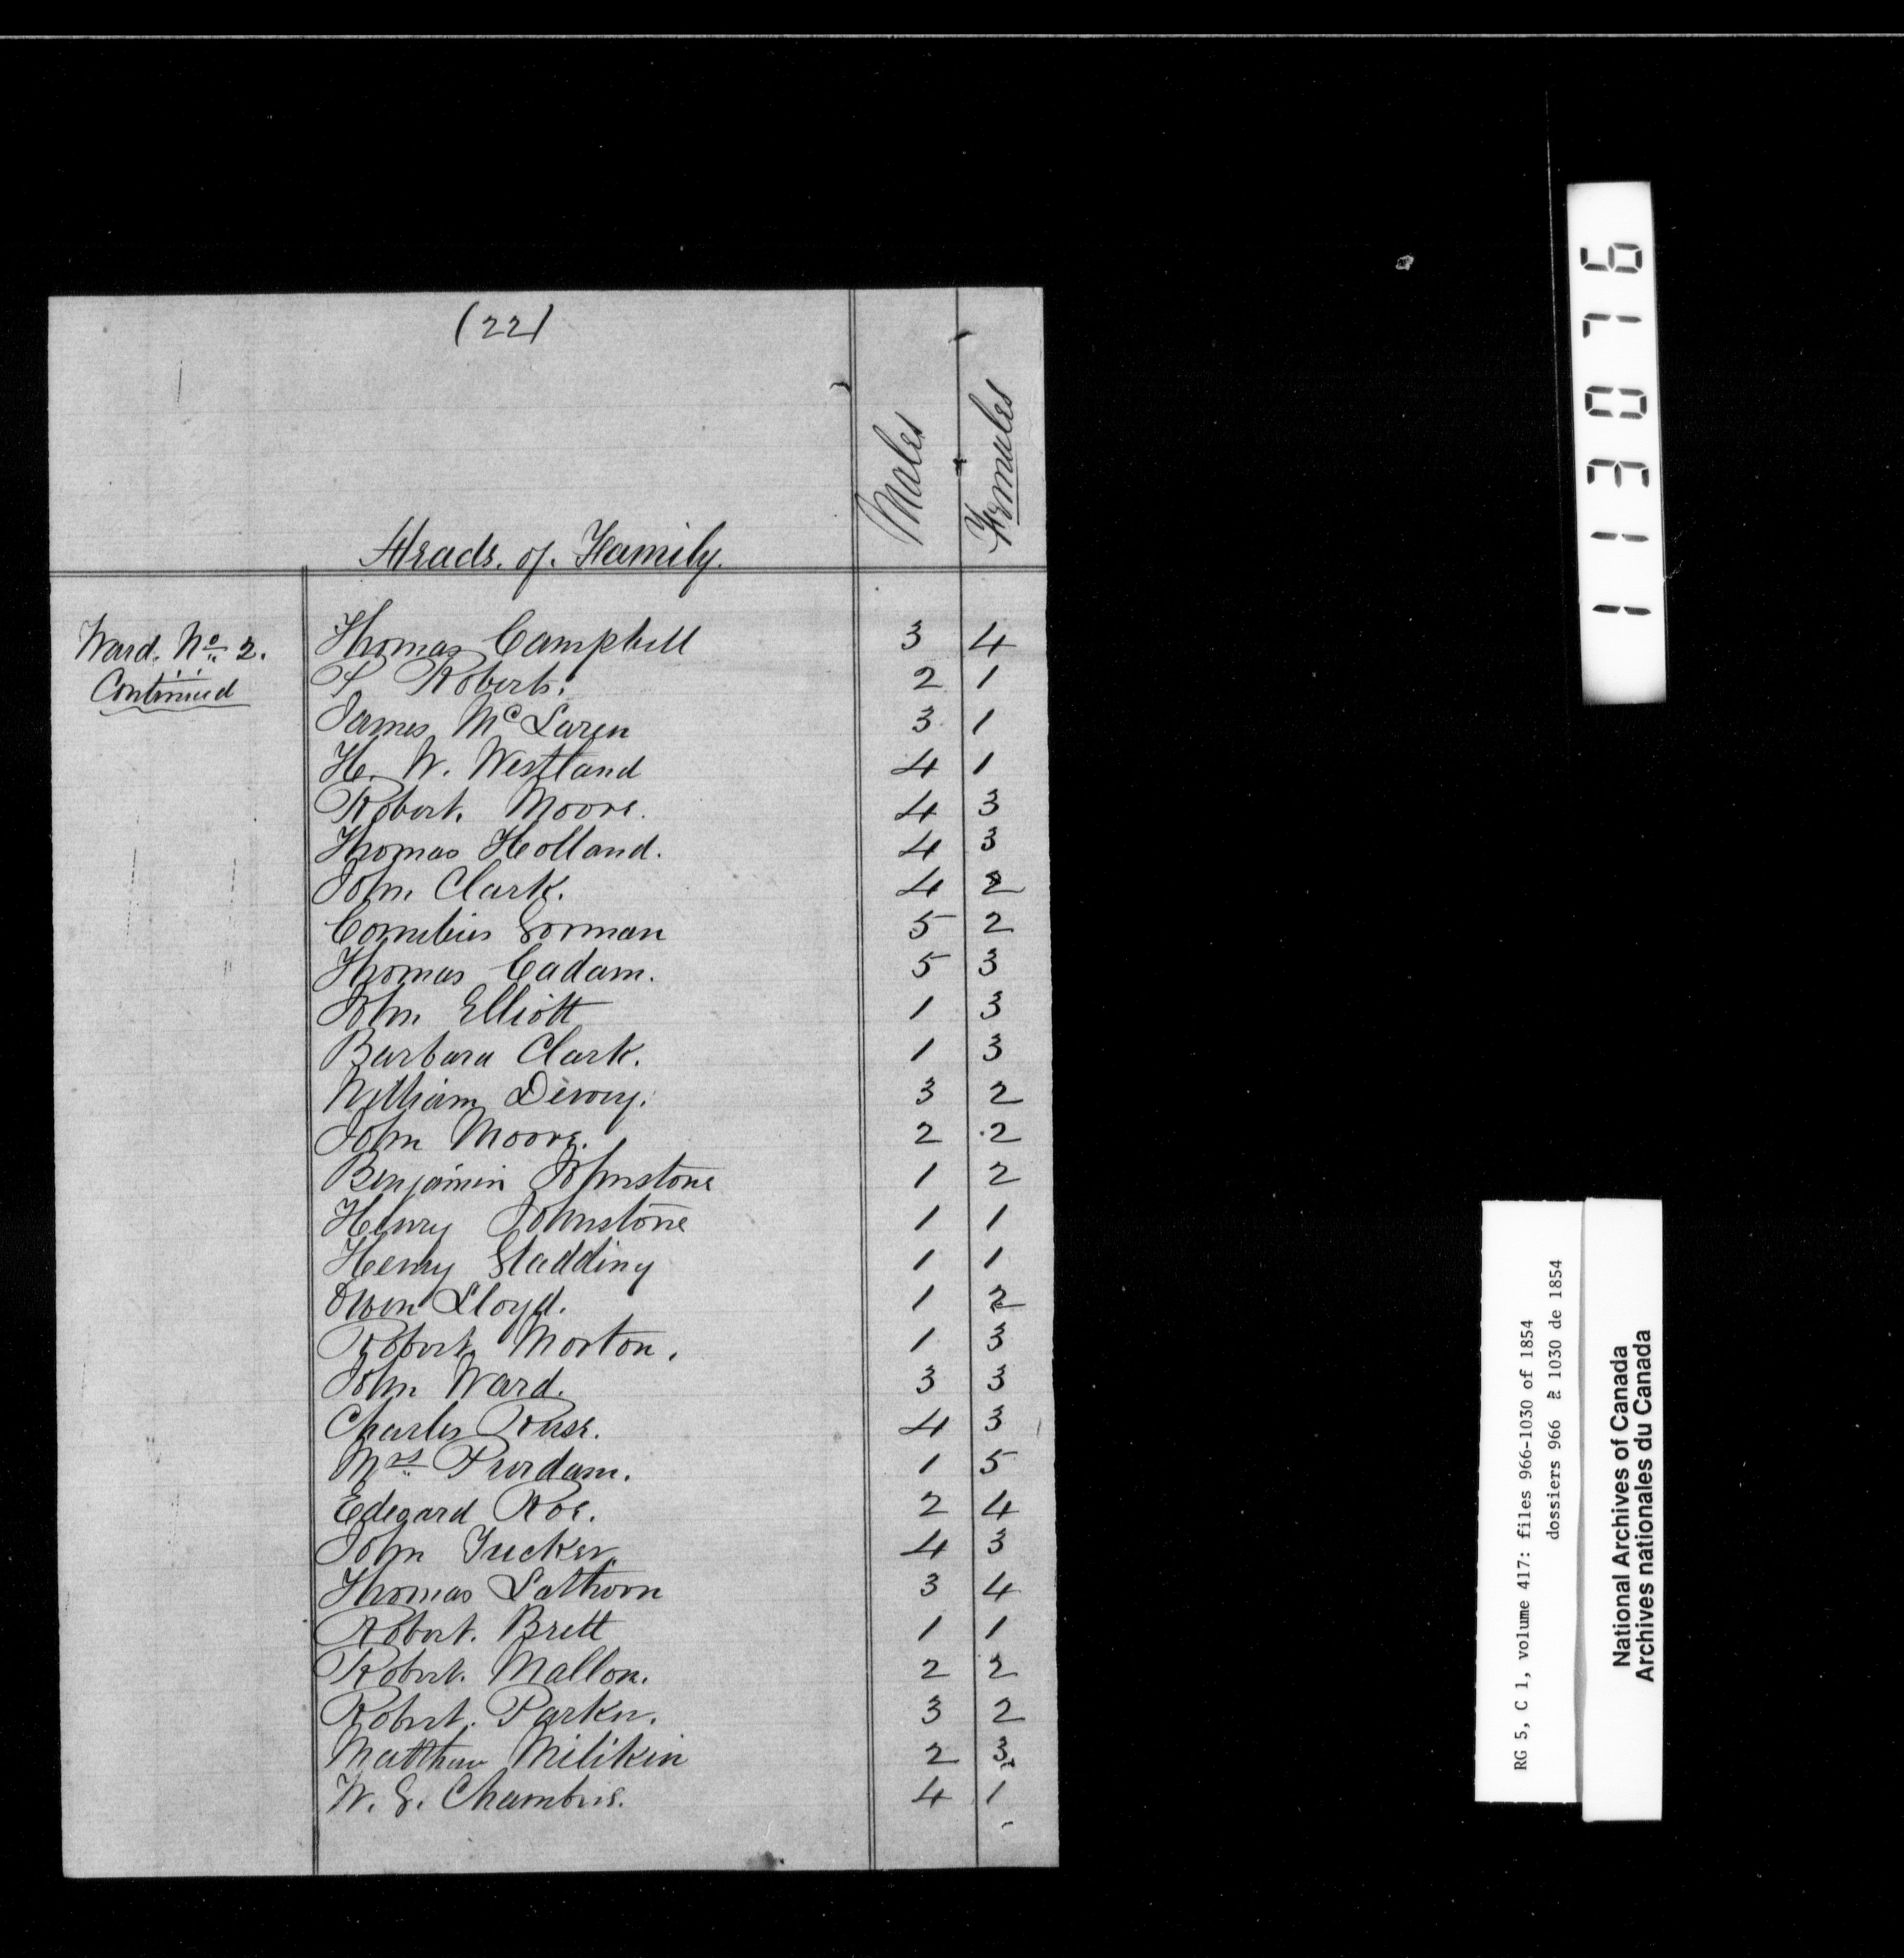 (22)
Males
Females
Heads. of. Family.
Ward. No. 2.
Continued
Thomas Campbell 3 4
T Roberts. 2 1
James McLaren 3 1
H. W. Westland 4 1
Robert. Moore. 4 3
Thomas Holland. 4 3
John Clark. 4 2
Cornelius Gorman 5 2
Thomas Cadam. 5 3
John Elliott 1 3
Barbara Clark. 1 3
William Dewey. 3 2
John Moore. 2 2
Benjamin Johnstone 1 2
Henry Johnstone 1 1
Henry Gladding 1 1
Owen Lloyd. 1 2
Robert Morton. 1 3
John Ward. 3 3
Charles Ruse. 4 3
Mrs Purdam. 1 5
Edegard Roe. 2 4
John Tucker. 4 3
Thomas Lathorn 3 4
Robert. Brett 1 1
Robert. Mallon. 2 2
Robert. Parker. 3 2
Matthew Milikin 2 3
W. G. Chambers. 4 1
113076
RG 5, C 1, volume 417: files 966-1030 of 1854
dossiers 966 à 1030 de 1854
National Archives of Canada
Archives nationales du Canada